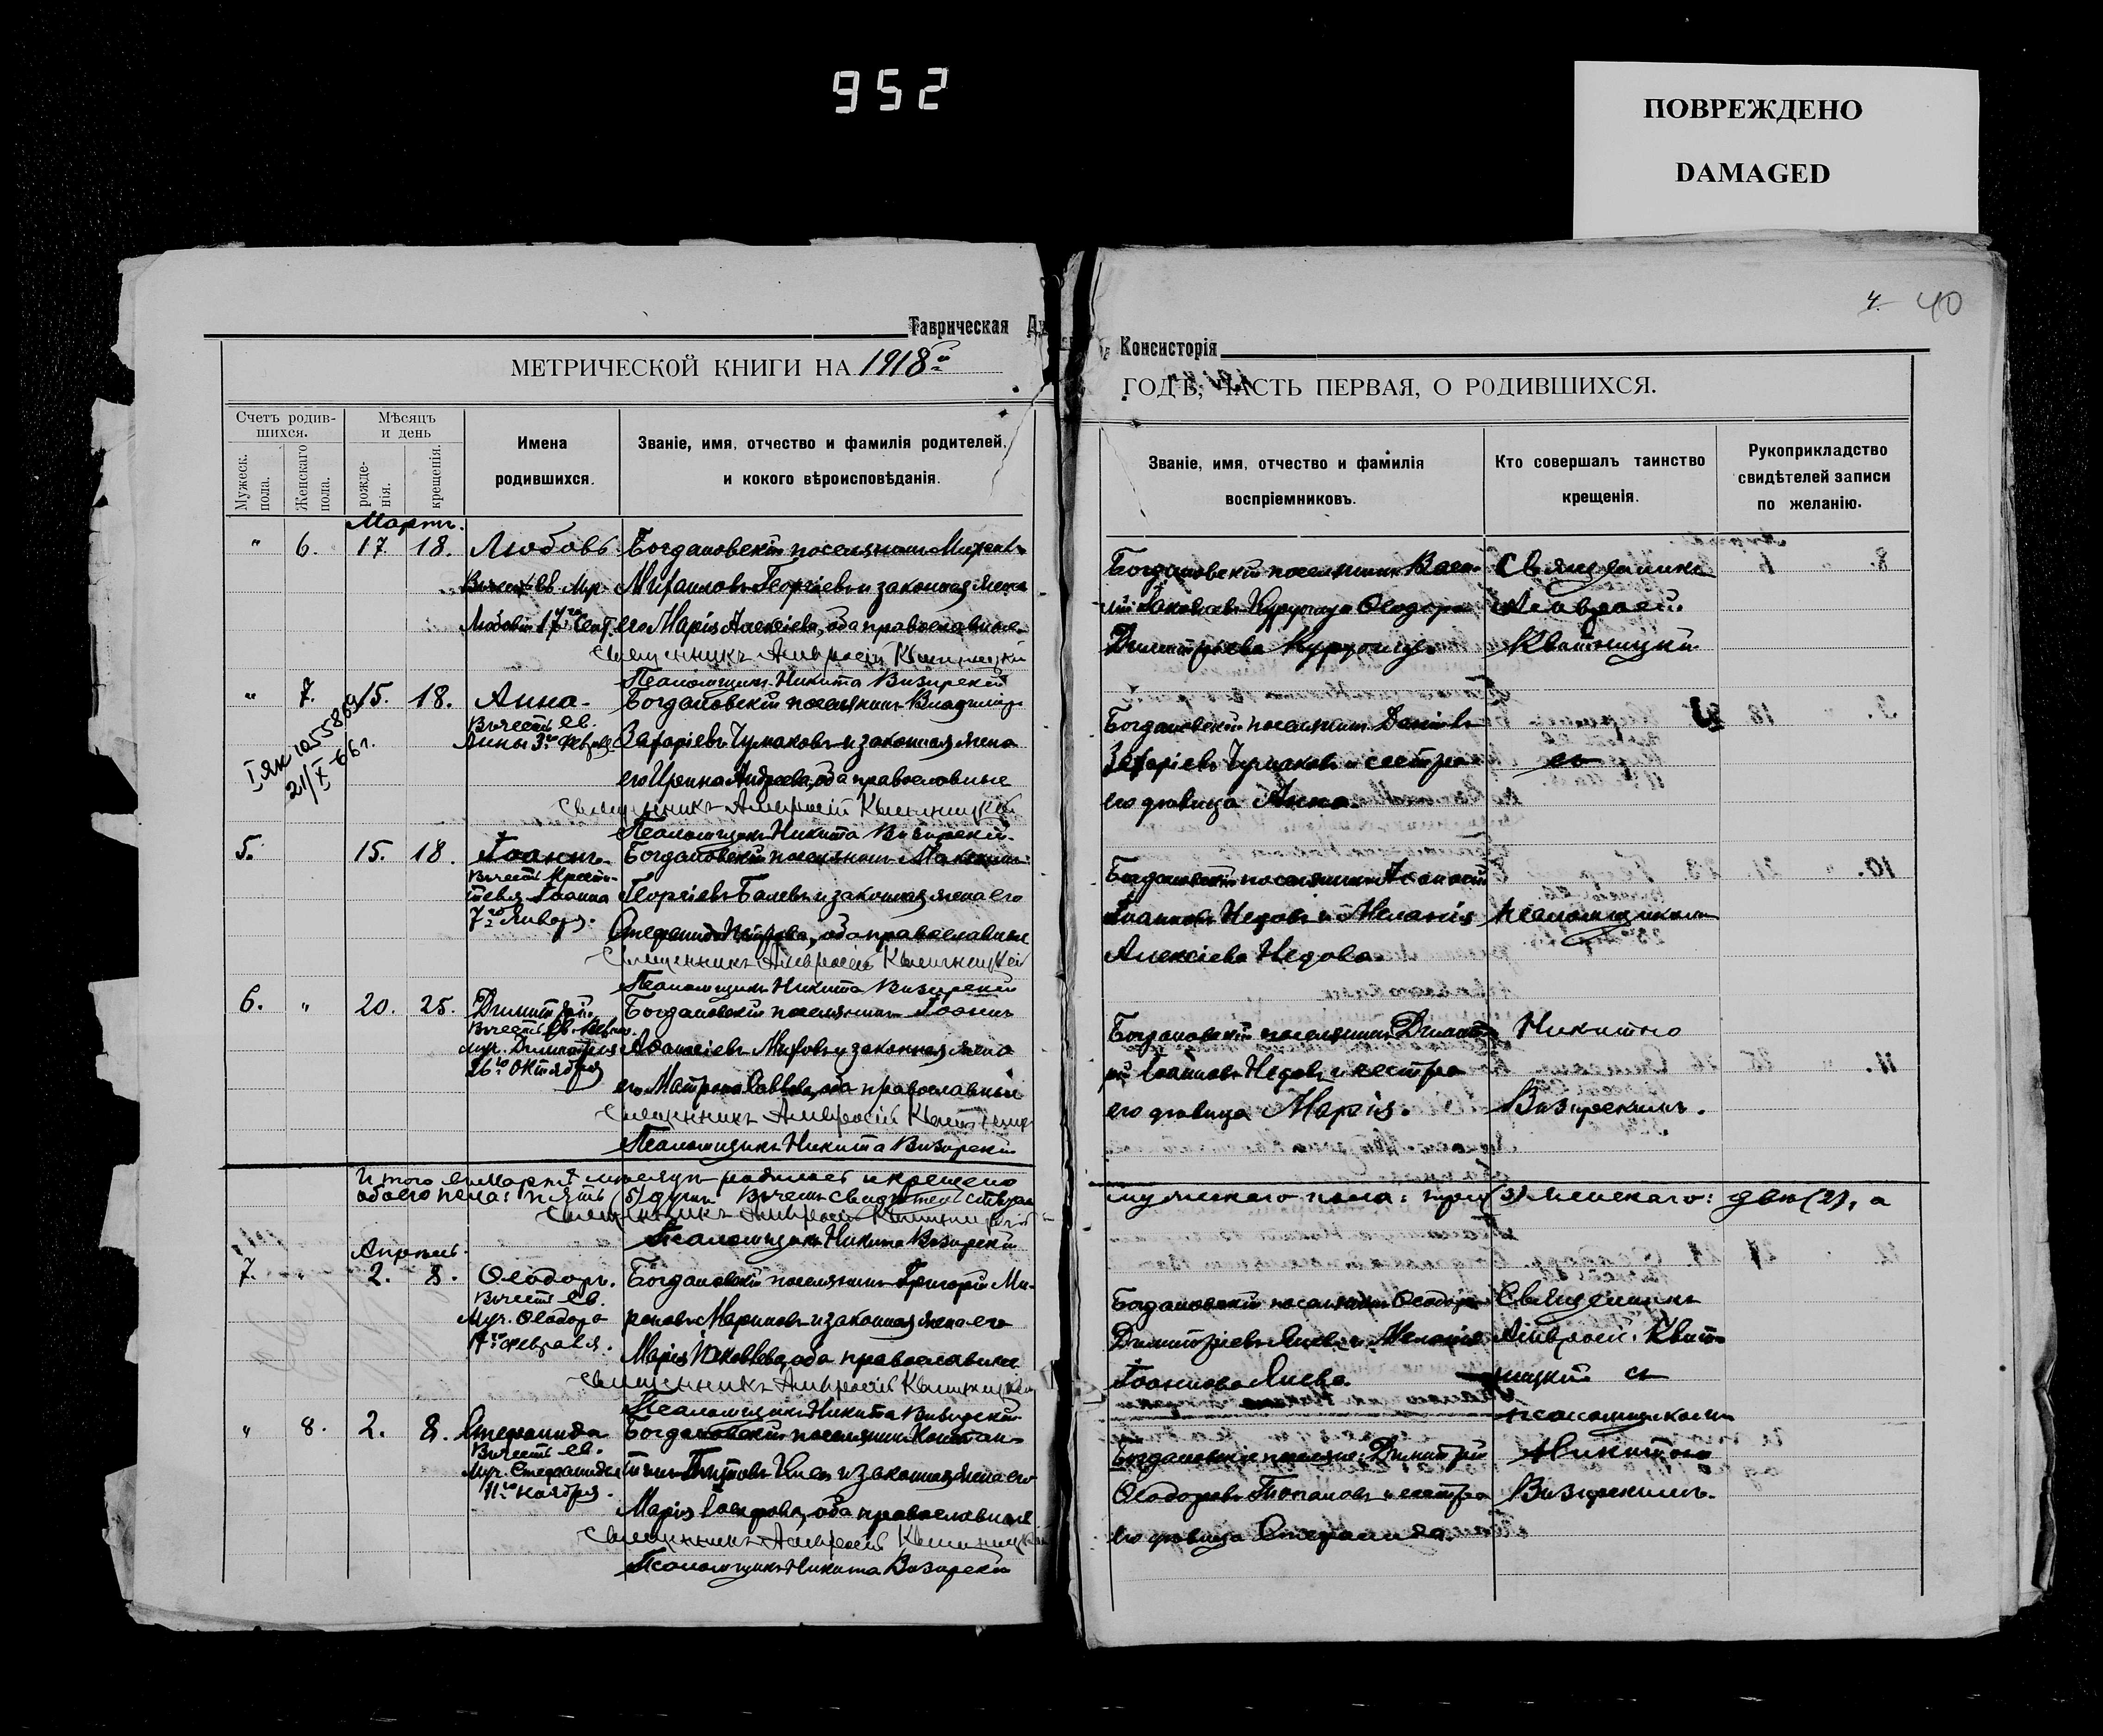 952
ПОВРЕЖДЕНО
DAMAGED
4. 40
Таврическая
Консисторія
МЕТРИЧЕСКОЙ КНИГИ НА 1918й
ГОДЪ, ЧАСТЬ ПЕРВАЯ, О РОДИВШИХСЯ.
Счетъ родив-
шихся.
Мужеск.
пола.
Женскаго
пола.
Мѣсяцъ
и день
рожде-
нія.
крещенія.
Имена
родившихся.
Званіе, имя, отчество и фамилія родителей,
и какого вѣроисповѣданія.
Званіе, имя, отчество и фамилія
воспріемниковъ.
Кто совершалъ таинство
крещенія.
Рукоприкладство
свидѣтелей записи
по желанію.
Мартъ.
" 6. 17. 18. Любовь. Богдановскій поселянинъ
Въ честь св. Мц. Михаиловъ Георгіевъ и законная жена
Любови 17го Сент. его Марія Алексіева, оба православные.
Священникъ Амвросій Квитницкій
Псаломщикъ Никита Визирскій
Богдановскій поселянинъ
Ѳеодора
Димитріева
Священникъ
Амвросій
Квитницкій
" 7. 15. 18. Анна. Богдановскій поселянинъ Владиміръ
Въ честь св.
Анны 3го Февраля Захаріевъ Чумаковъ и законная жена
его Ирина Андреева, оба православные
Священникъ Амвросій Квитницкій
Псаломщикъ Никита Визирскій
I ЯК 1055869
21/X-66 г.
Богдановскій поселянинъ Даніилъ
Захаріевъ Чумаковъ и сестра
его дѣвица Анна.
съ
5. 15. 18. Іоаннъ. Богдановскій поселянинъ
Въ честь Крести-
теля Іоанна Георгіевъ Балевъ и законная жена его
7го Января. Стефанида Петрова, оба православные
Священникъ Амвросій Квитницкій
Псаломщикъ Никита Визирскій
Богдановскій поселянинъ
Іоанновъ Недовъ и Меланія
Алексіева Недова.
псаломщикомъ
6. " 20. 25. Димитрій. Богдановскій поселянинъ Іоаннъ
Въ честь св. Велик.
муч. Димитрія Аѳанасіевъ и законная жена
26го Октября его Матрона Саввова, оба православные
Священникъ Амвросій Квитницкій
Псаломщикъ Никита Визирскій
Богдановскій поселянинъ Димит-
рій Іоанновъ Недовъ и сестра
его дѣвица Марія.
Никитою
Визирскимъ.
Итого въ Мартѣ мѣсяцѣ родилось и крещено
мужескаго пола: три (3) женскаго: двѣ (2), а
обоего пола: пять (5) душъ. Въ чемъ свидѣтельствуемъ
Священникъ Амвросій Квитницкій
Псаломщикъ Никита Визирскій
Апрѣль.
7. " 2. 8. Ѳеодоръ. Богдановскій поселянинъ Григорій Ми-
Въ честь св.
Муч. Ѳеодора роновъ Мариновъ и законная жена его
17го Февраля. Марія Іаковлева, оба православные
Священникъ Амвросій Квитницкій
Псаломщикъ Никита Визирскій
Богдановскій поселянинъ Ѳеодоръ
Димитріевъ и Меланія
Іоаннова
Священникъ
Амвросій Квит-
ницкій съ
псаломщикомъ
" 8. 2. 8. Стефанида Богдановскій поселянинъ Констан-
Въ честь св.
Муч. Стефаниды тинъ и законная жена его
11го Ноября. Марія Іосифова, оба православные
Священникъ Амвросій Квитницкій
Псаломщикъ Никита Визирскій
Димитрій
Ѳеодоровъ и сестра
его дѣвица Стефанида.
Никитою
Визирскимъ.